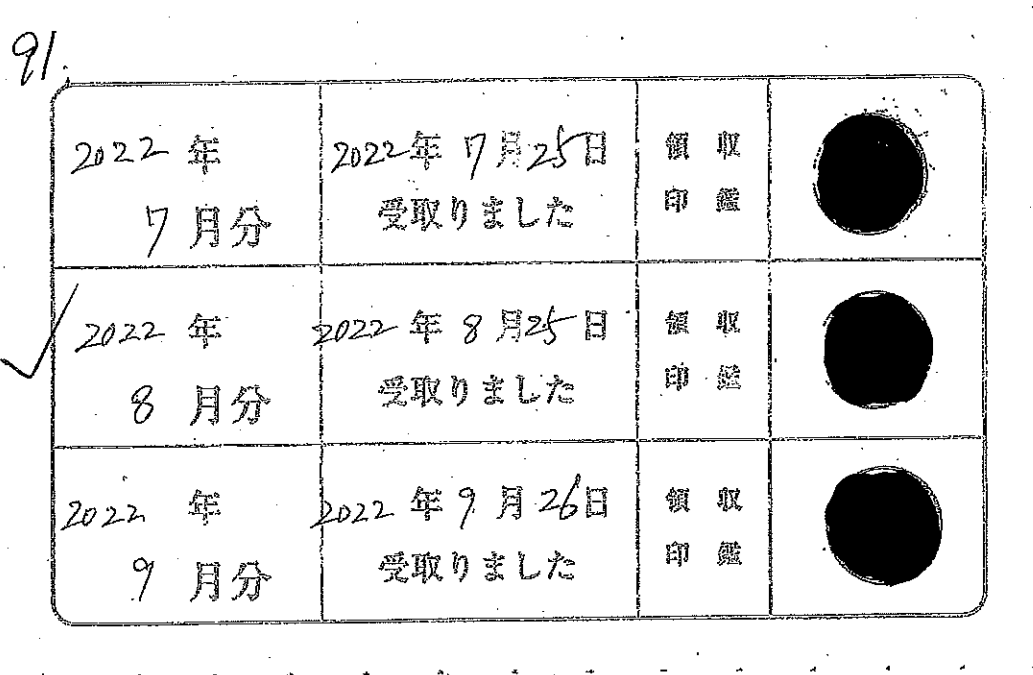 91.
2022年
7月分
2022年7月25日
受取りました
領収
印鑑
2022年
8月分
2022年8月25日
受取りました
領収
印鑑
2022年
9月分
2022年9月26日
受取りました
領収
印鑑